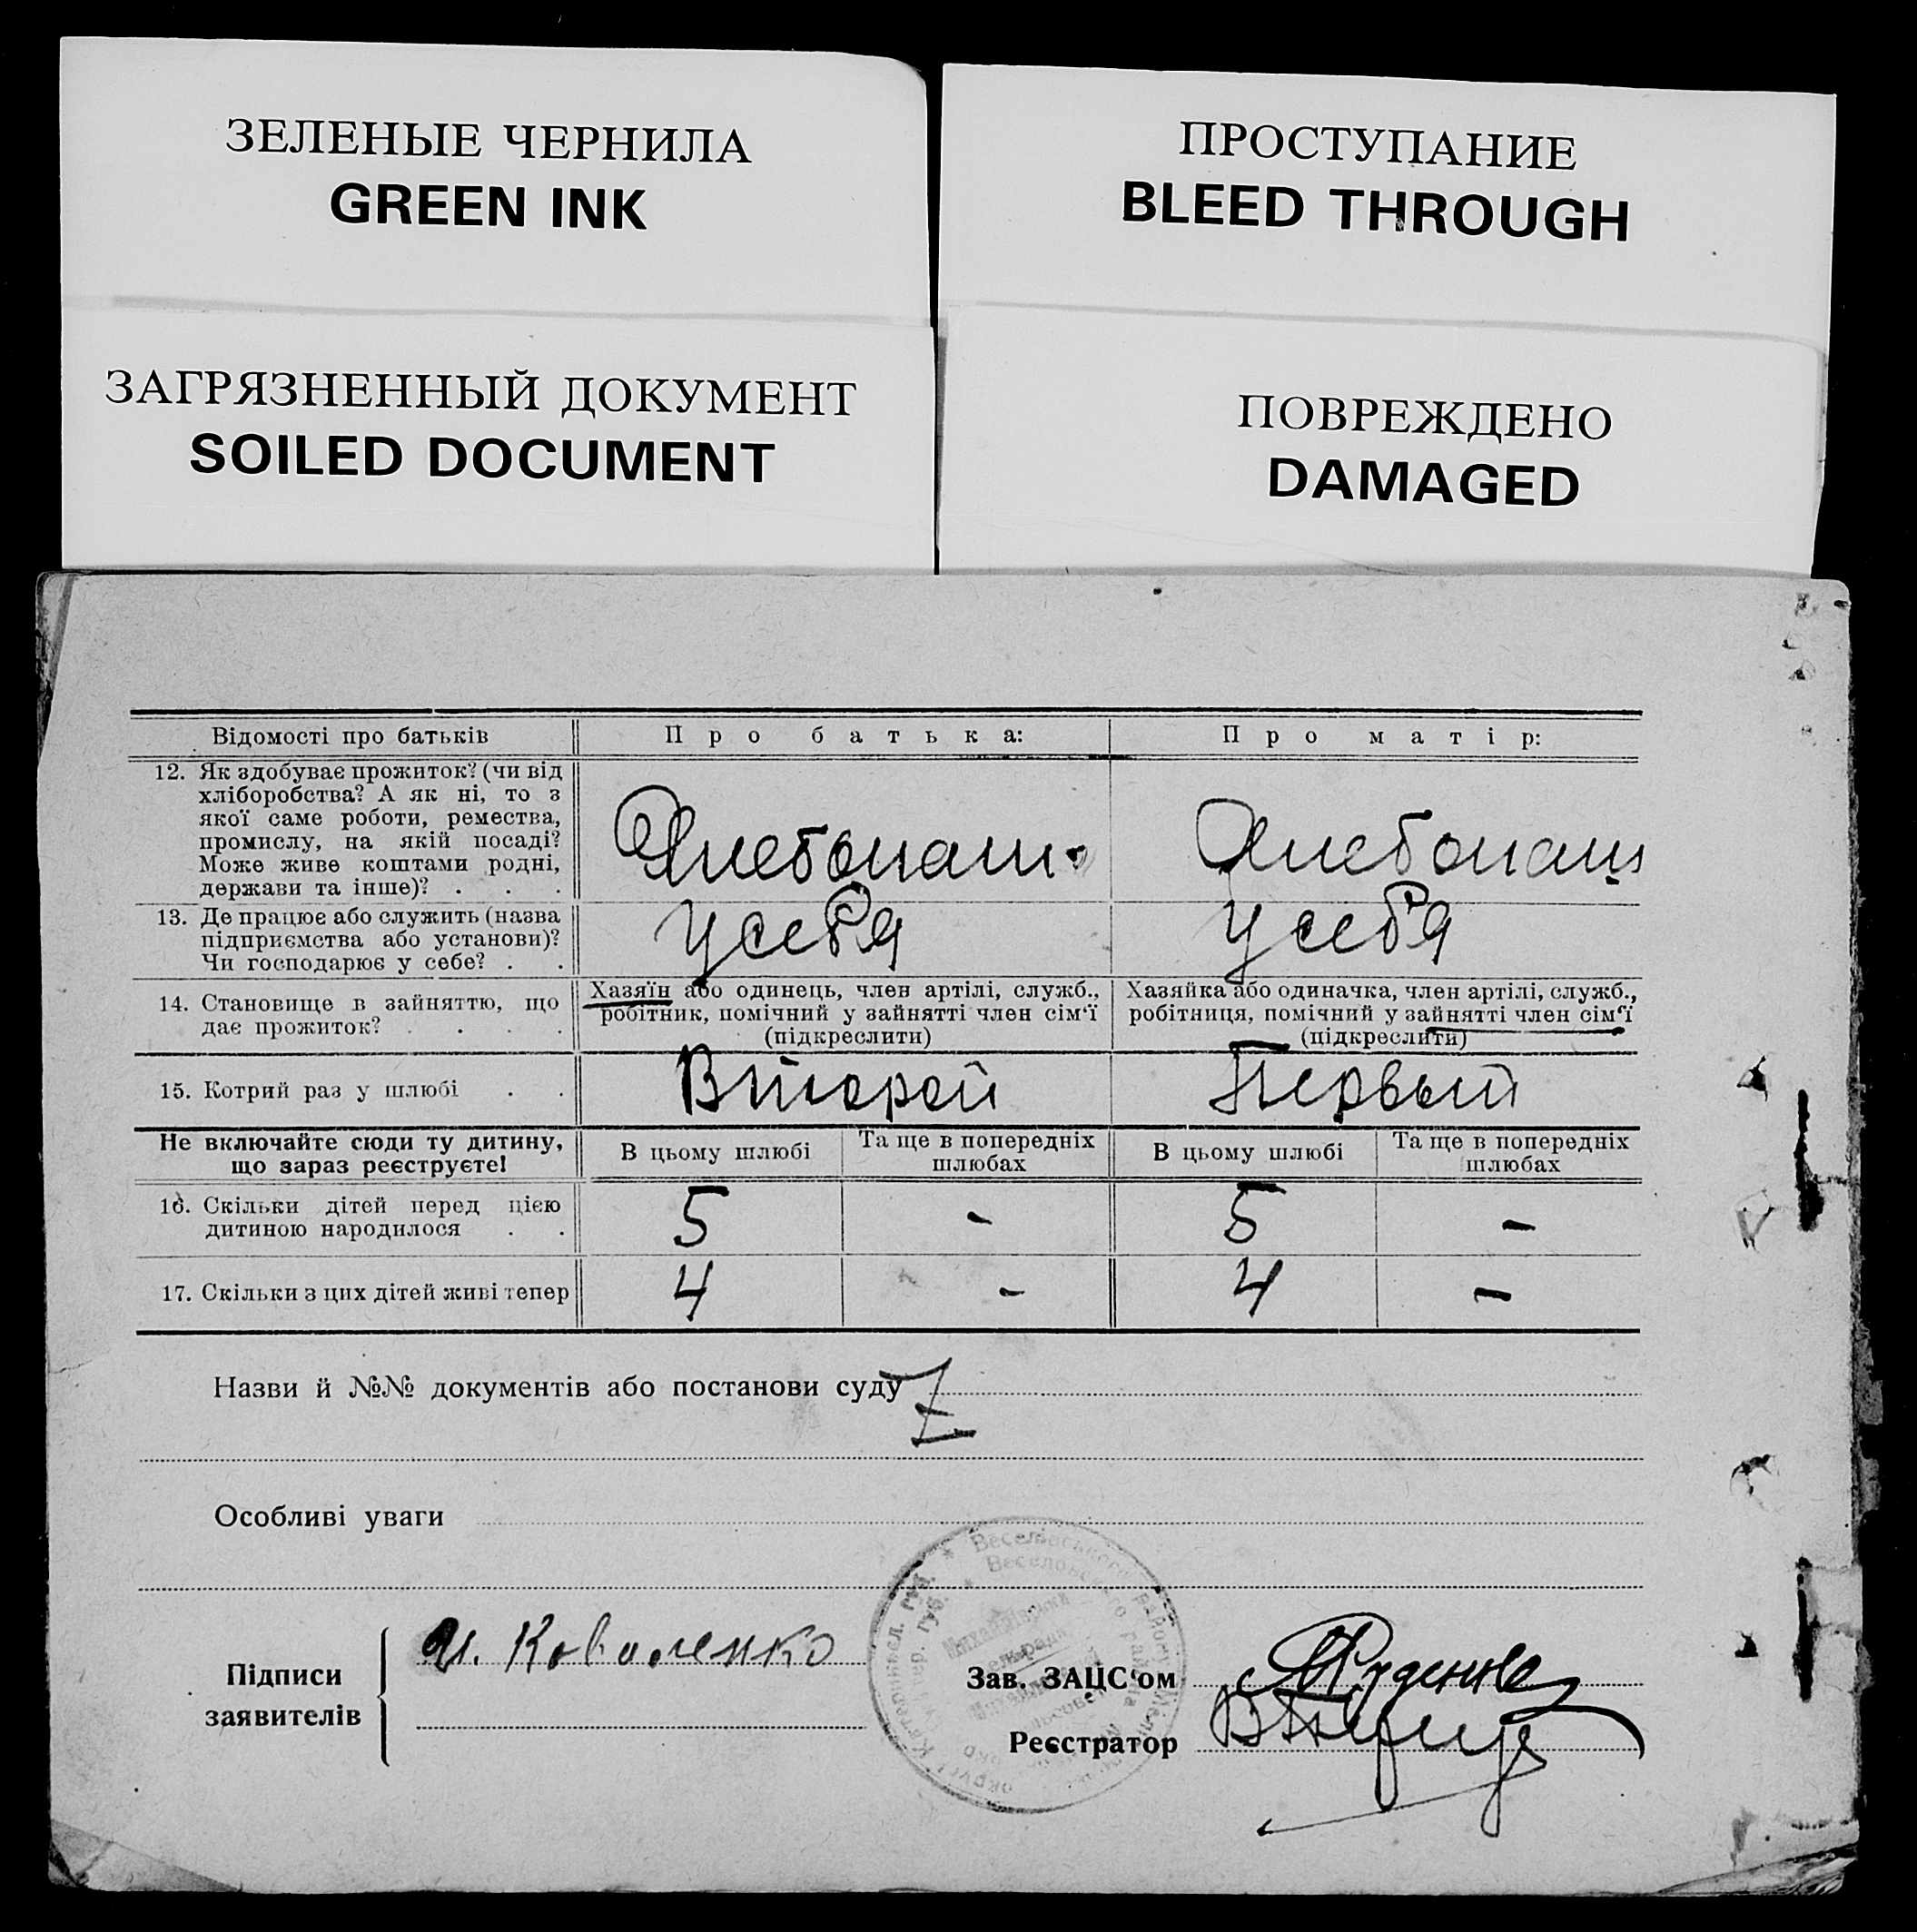 ЗЕЛЕНЫЕ ЧЕРНИЛА
GREEN INK
ПРОСТУПАНИЕ
BLEED THROUGH
ЗАГРЯЗНЕННЫЙ ДОКУМЕНТ
SOILED DOCUMENT
ПОВРЕЖДЕНО
DAMAGED
Відомості про батьків
Про батька:
Про матір:
12. Як здобуває прожиток? (чи від
хліборобства? А як ні, то з
якої саме роботи, ремества,
промислу, на якій посаді?
Може живе коштами родні,
держави та інше)? . . .
Хлебопаш.
Хлебопаш
13. Де працює або служить (назва
підприємства або установи)?
Чи господарює у себе? . .
у себя
у себя
14. Становище в зайняттю, що
дає прожиток? . . . .
Хазяїн або одинець, член артілі, служб.,
робітник, помічний у зайнятті член сім'ї
(підкреслити)
Хазяйка або одиначка, член артілі, служб.,
робітниця, помічний у зайнятті член сім'ї
(підкреслити)
15. Котрий раз у шлюбі . .
Второй
Первый
Не включайте сюди ту дитину,
що зараз реєструєте!
В цьому шлюбі
Та ще в попередніх
шлюбах
В цьому шлюбі
Та ще в попередніх
шлюбах
16. Скільки дітей перед цією
дитиною народилося . .
5
-
5
-
17. Скільки з цих дітей живі тепер
4
-
4
-
Назви й №№ документів або постанови суду
Особливі уваги
Підписи
заявителів
И. Коваленко
Зав. ЗАЦС'ом
Реєстратор